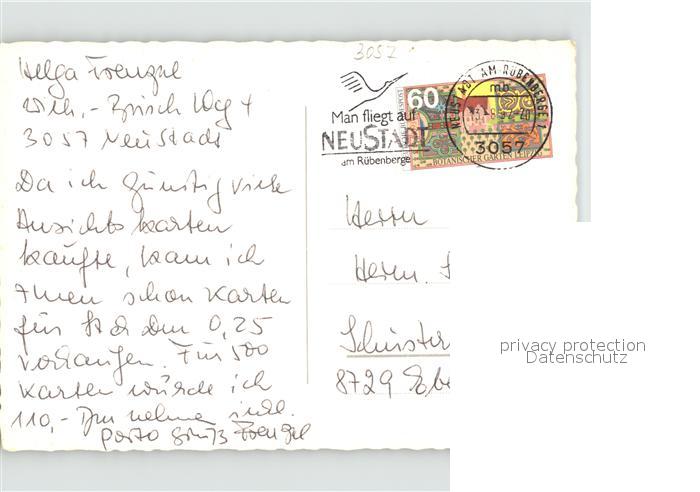 Helga Frenzel
Wilh.-Busch Weg 4
3057 Neustadt
Da ich günstig viele
Ansichtskarten
kaufte, kann ich
Ihnen schon Karten
für Stck DM 0,25
verlangen. Für 500
Karten würde ich
110,- DM nehmen inkl.
Porto Gruß Frenzel
3057
Man fliegt auf
NEUSTADT
am Rübenberge
60
BOTANISCHER GARTEN LEIPZIG
NEUSTADT AM RÜBENBERGE 1
mb
3057
Herrn
Herrn
8729
privacy protection
Datenschutz